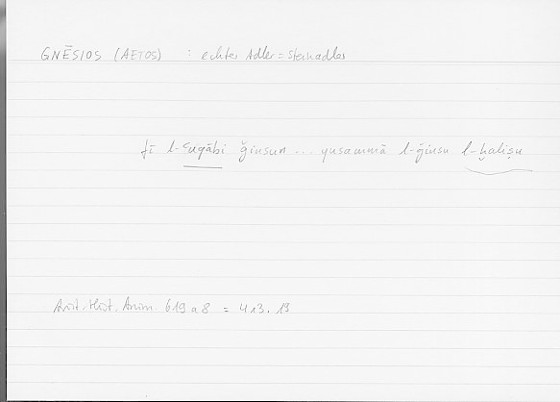 GNĒSIOS (AETOS) : echter Adler = Steinadler
fī l-ʿuqābi ǧinsun ... yusammā l-ǧinsu l-ḫāliṣu
Arist. Hist. Anim. 619 a 8 = 413.19